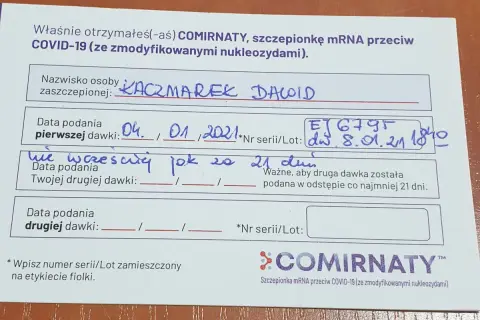 Właśnie otrzymałeś(-aś) COMIRNATY, szczepionkę mRNA przeciw
COVID-19 (ze zmodyfikowanymi nukleozydami).
Nazwisko osoby zaszczepionej: KACZMAREK DAWID
Data podania
pierwszej dawki: 04. / 01 / 2021 *Nr serii/Lot: EJ6795
dw. 8.01.21 18:40
nie wcześniej jak za 21 dni
Data podania
Twojej drugiej dawki: / / Ważne, aby druga dawka została
podana w odstępie co najmniej 21 dni.
Data podania
drugiej dawki: / / *Nr serii/Lot:
* Wpisz numer serii/Lot zamieszczony
na etykiecie fiolki.
COMIRNATY™
Szczepionka mRNA przeciw COVID-19 (ze zmodyfikowanymi nukleozydami)